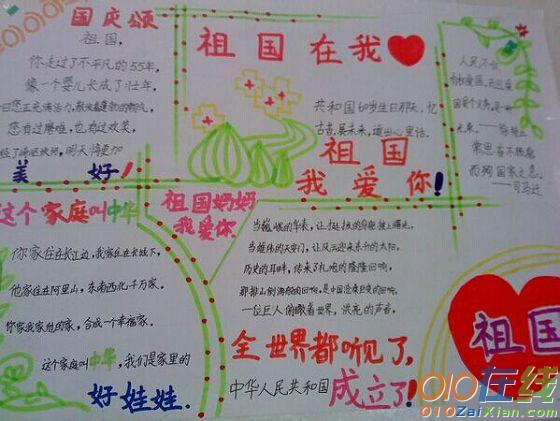 国庆颂
祖国,
你走过了不平凡的55年,
像一个婴儿长成了壮年,
您有过磨难,也有过欢笑,
美好!
祖国在我
共和国60岁生日那天,忆
古昔,展未来,道出心里话。
祖国
我爱你!
人民不仅
有权爱国,而且爱
国是个义务,是一种
光荣。
常思奋不顾身
而殉国家之急。
——司马迁
这个家庭叫中华
你家住在长江边,我家住在长城下,
他家住在阿里山,东南西北千万家。
你家我家他的家,合成一个幸福家。
这个家庭叫中华,我们是家里的
好娃娃.
祖国妈妈
我爱你
当巍峨的华表,让挺拔的身躯披上曙光,
当雄伟的天安门,让风云迎来东升的太阳,
历史的耳畔,传来了礼炮的隆隆回响,
那排山倒海般的回响,是中国沧桑巨变的回响。
一位巨人俯瞰着世界,洪亮的声音,
全世界都听见了,
中华人民共和国成立了!
祖国
010在线
010ZaiXian.com